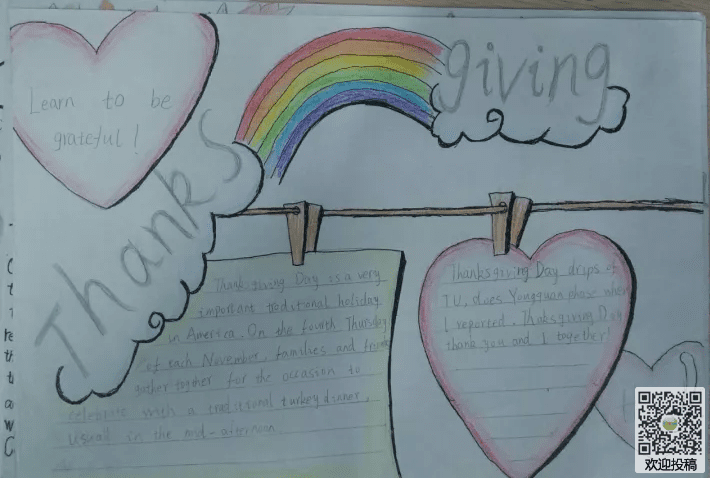 Learn to be
grateful!
Thanks
giving
Thanksgiving Day is a very
important traditional holiday
in America. On the fourth Thursday
of each November, families and friends
gather together for the occasion to
celebrate with a traditional turkey dinner,
usuall in the mid-afternoon.
Thanksgiving Day drips of
TU, does Yongquan phase when
I reported. Thaksgiving Day
thank you and I together!
欢迎投稿